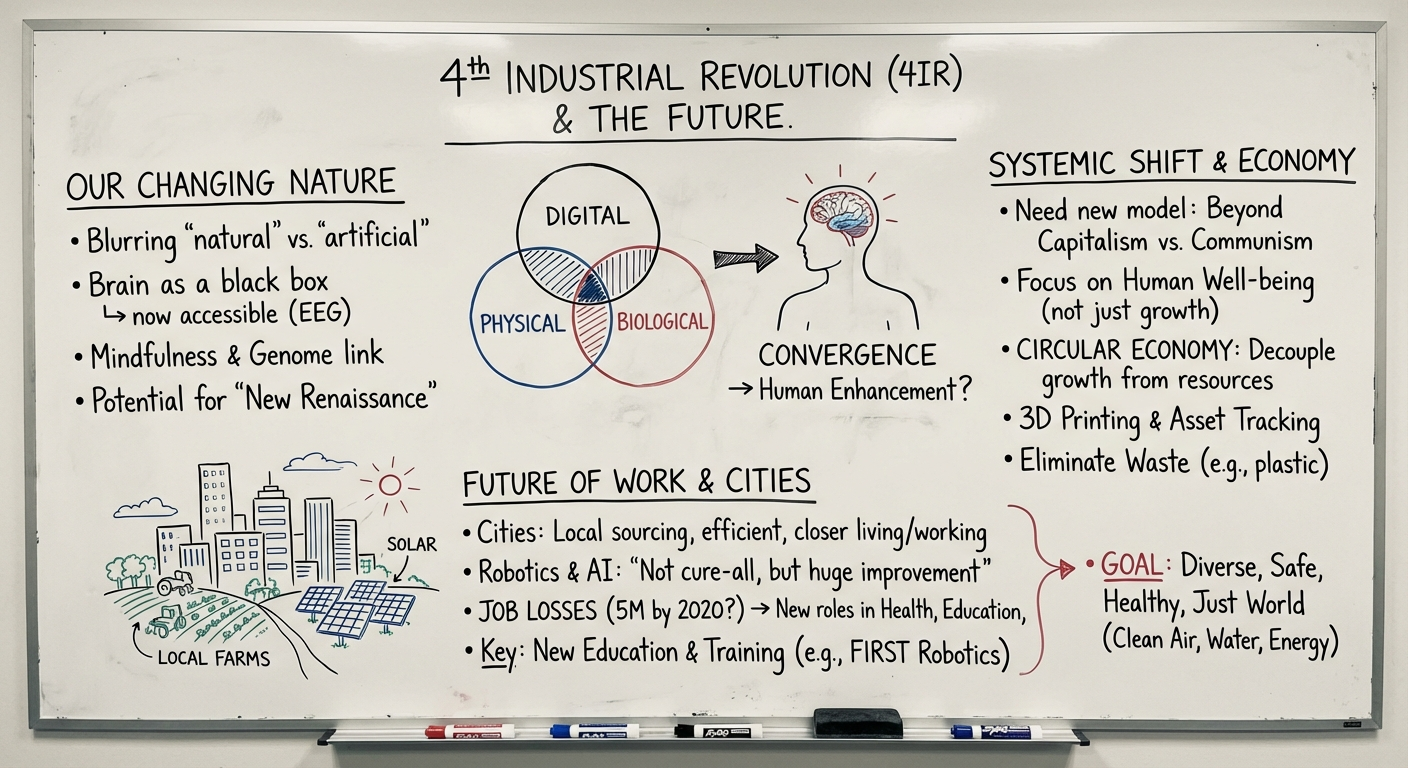 4th INDUSTRIAL REVOLUTION (4IR)
& THE FUTURE.
OUR CHANGING NATURE
• Blurring "natural" vs. "artificial"
• Brain as a black box
↳ now accessible (EEG)
• Mindfulness & Genome link
• Potential for "New Renaissance"
DIGITAL
PHYSICAL
BIOLOGICAL
CONVERGENCE
→ Human Enhancement?
SYSTEMIC SHIFT & ECONOMY
• Need new model: Beyond
Capitalism vs. Communism
• Focus on Human Well-being
(not just growth)
• CIRCULAR ECONOMY: Decouple
growth from resources
• 3D Printing & Asset Tracking
• Eliminate Waste (e.g., plastic)
SOLAR
LOCAL FARMS
FUTURE OF WORK & CITIES
• Cities: Local sourcing, efficient, closer living/working
• Robotics & AI: "Not cure-all, but huge improvement"
• JOB LOSSES (5M by 2020?) → New roles in Health, Education,
• Key: New Education & Training (e.g., FIRST Robotics)
• GOAL: Diverse, Safe,
Healthy, Just World
(Clean Air, Water, Energy)